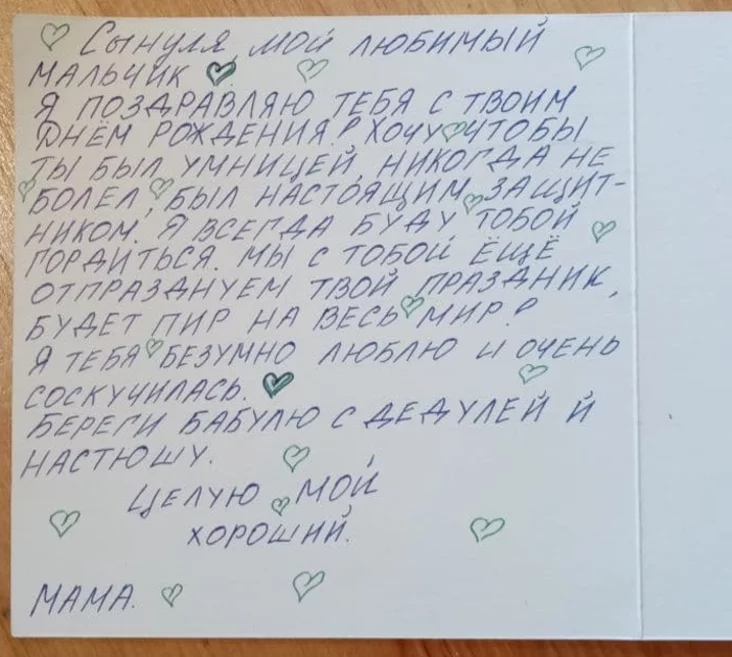 Сынуля, мой любимый
мальчик
Я поздравляю тебя с твоим
днём рождения! Хочу чтобы
ты был умницей, никогда не
болел, был настоящим защит-
ником. Я всегда буду тобой
гордиться. Мы с тобой ещё
отпразднуем твой праздник,
будет пир на весь мир!
Я тебя безумно люблю и очень
соскучилась.
Береги бабулю с дедулей й
Настюшу.
Целую мой
хороший.
Мама.